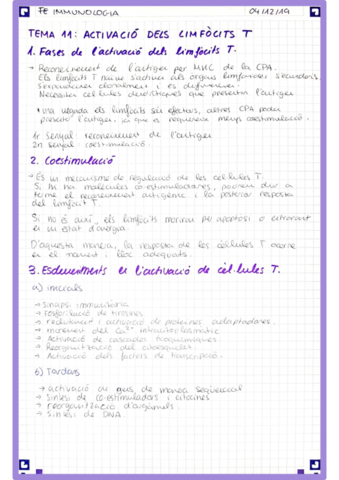 FE IMMUNOLOGIA 04/12/19
TEMA 11: ACTIVACIÓ DELS LIMFÒCITS T
1. Fases de l'activació dels limfocits T.
→ Reconeixement de l'antigen per MHC de la CPA.
Els limfocits T naïve s'activen als òrgans limfoides secundaris.
i es diferencien.
Necessiten cèl·lules dendrítiques que presentin l'antigen
* una vegada els limfocits són efectors, altres CPA poden
presentar l'antigen, ja que es requereix menys coestimulació.
1r Senyal: reconeixement de l'antigen
2n senyal: coestimulació.
2. Coestimulació
→ És un mecanisme de regulació de les cèl·lules T.
Si hi ha molècules co-estimuladores, podrem dur a
terme el reconeixement antigènic i la posterior resposta
del limfocit T.
Si no és així, els limfocits moriran per apoptosi o entraran
en un estat d'anergia.
D'aquesta manera, la resposta de les cèl·lules T ocorre
en el moment i lloc adequats.
3. Esdeveniments en l'activació de cèl·lules T.
a) inicials
→ Sinapsi immunitària
→ Fosforilació de tirosines
→ reclutament i activació de proteïnes adaptadores.
→ Increment del Ca²⁺ intracitoplasmàtic
→ Activació de cascades bioquímiques.
→ Reorganització del citoesquelet.
→ Activació dels factors de transcripció.
b) Tardans
→ activació de gens de manera seqüencial
→ Síntesi de co-estimuladors i citocines
→ reorganització d'orgànuls
→ Síntesi de DNA